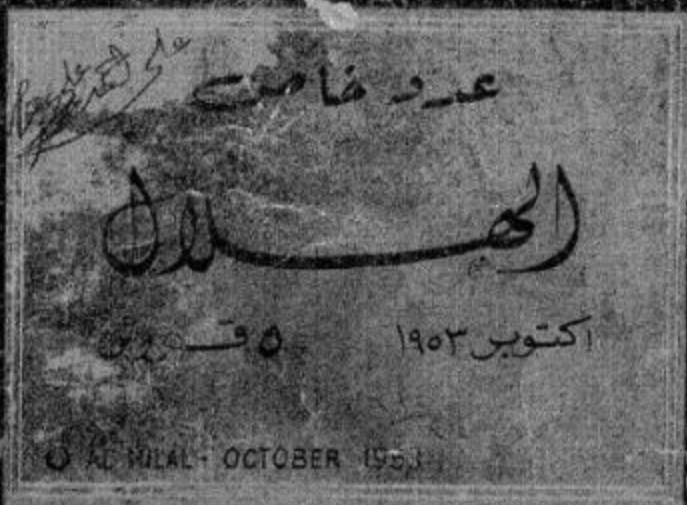 عدد خاص
الهلال
اكتوبر ١٩٥٣
٥ قروش
AL HILAL - OCTOBER 1953